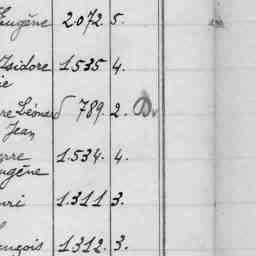 Eugène 2.072. 5.
Isidore 1.535 4.
ie
re Léonard 789. 2. D.
Jean
rre 1.534. 4.
ugène
nri 1.311 3.
ançois 1.312. 3.